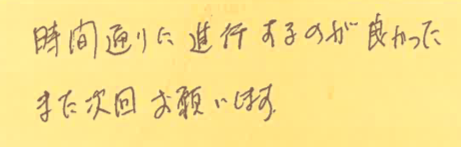 時間通りに進行するのが良かった
また次回お願いします.